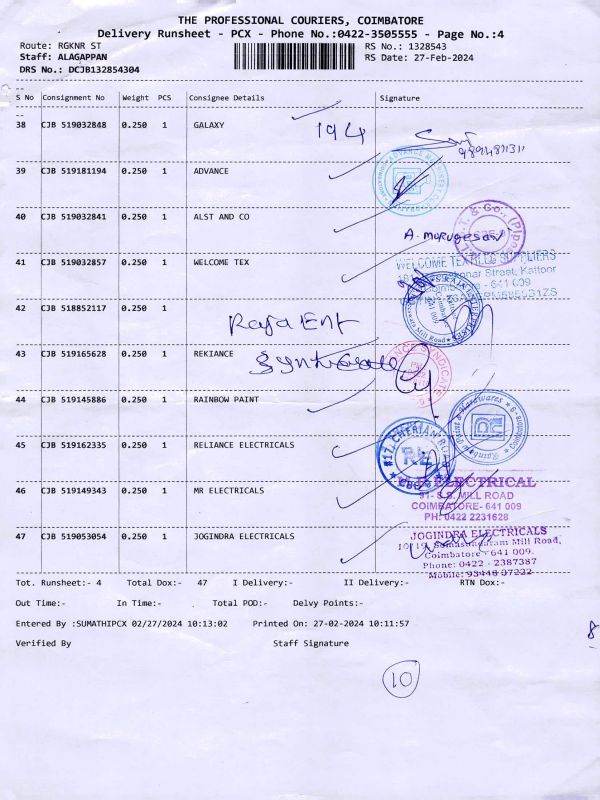 THE PROFESSIONAL COURIERS, COIMBATORE
Delivery Runsheet - PCX - Phone No.:0422-3505555 - Page No.:4
Route: RGKNR ST RS No.: 1328543
Staff: ALAGAPPAN RS Date: 27-Feb-2024
DRS No.: DCJB132854304
S No Consignment No Weight PCS Consignee Details Signature
38 CJB 519032848 0.250 1 GALAXY 194
39 CJB 519181194 0.250 1 ADVANCE
40 CJB 519032841 0.250 1 ALST AND CO
A. murugesan
41 CJB 519032857 0.250 1 WELCOME TEX
WELCOME TEXTILES SUPPLIERS
42 CJB 518852117 0.250 1
Raja Ent
43 CJB 519165628 0.250 1 REKIANCE
Syndicate
44 CJB 519145886 0.250 1 RAINBOW PAINT
45 CJB 519162335 0.250 1 RELIANCE ELECTRICALS
#17, CHERIAN ROAD
RE
46 CJB 519149343 0.250 1 MR ELECTRICALS
ELECTRICAL
MILL ROAD
COIMBATORE- 641 009
PH: 0422 2231628
47 CJB 519053054 0.250 1 JOGINDRA ELECTRICALS
JOGINDRA ELECTRICALS
Mill Road,
Coimbatore - 641 009.
Phone: 0422 - 2387387
Mobile: 93448 07222
Tot. Runsheet:- 4 Total Dox:- 47 I Delivery:- II Delivery:- RTN Dox:-
Out Time:- In Time:- Total POD:- Delvy Points:-
Entered By :SUMATHIPCX 02/27/2024 10:13:02 Printed On: 27-02-2024 10:11:57
Verified By Staff Signature
10